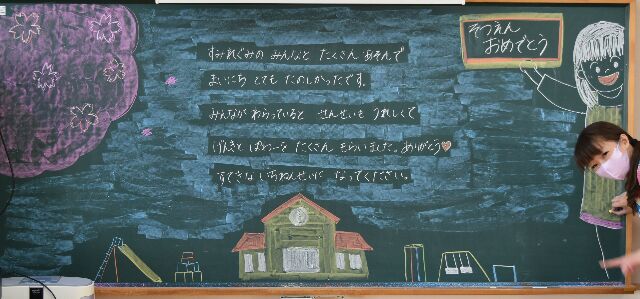 そつえん
おめでとう
すみれぐみの みんなと たくさん あそんで
まいにち とても たのしかったです。
みんなが わらっていると せんせいも うれしくて
げんきと ぱわーを たくさん もらいました。ありがとう♡
すてきな いちねんせいに なってください。